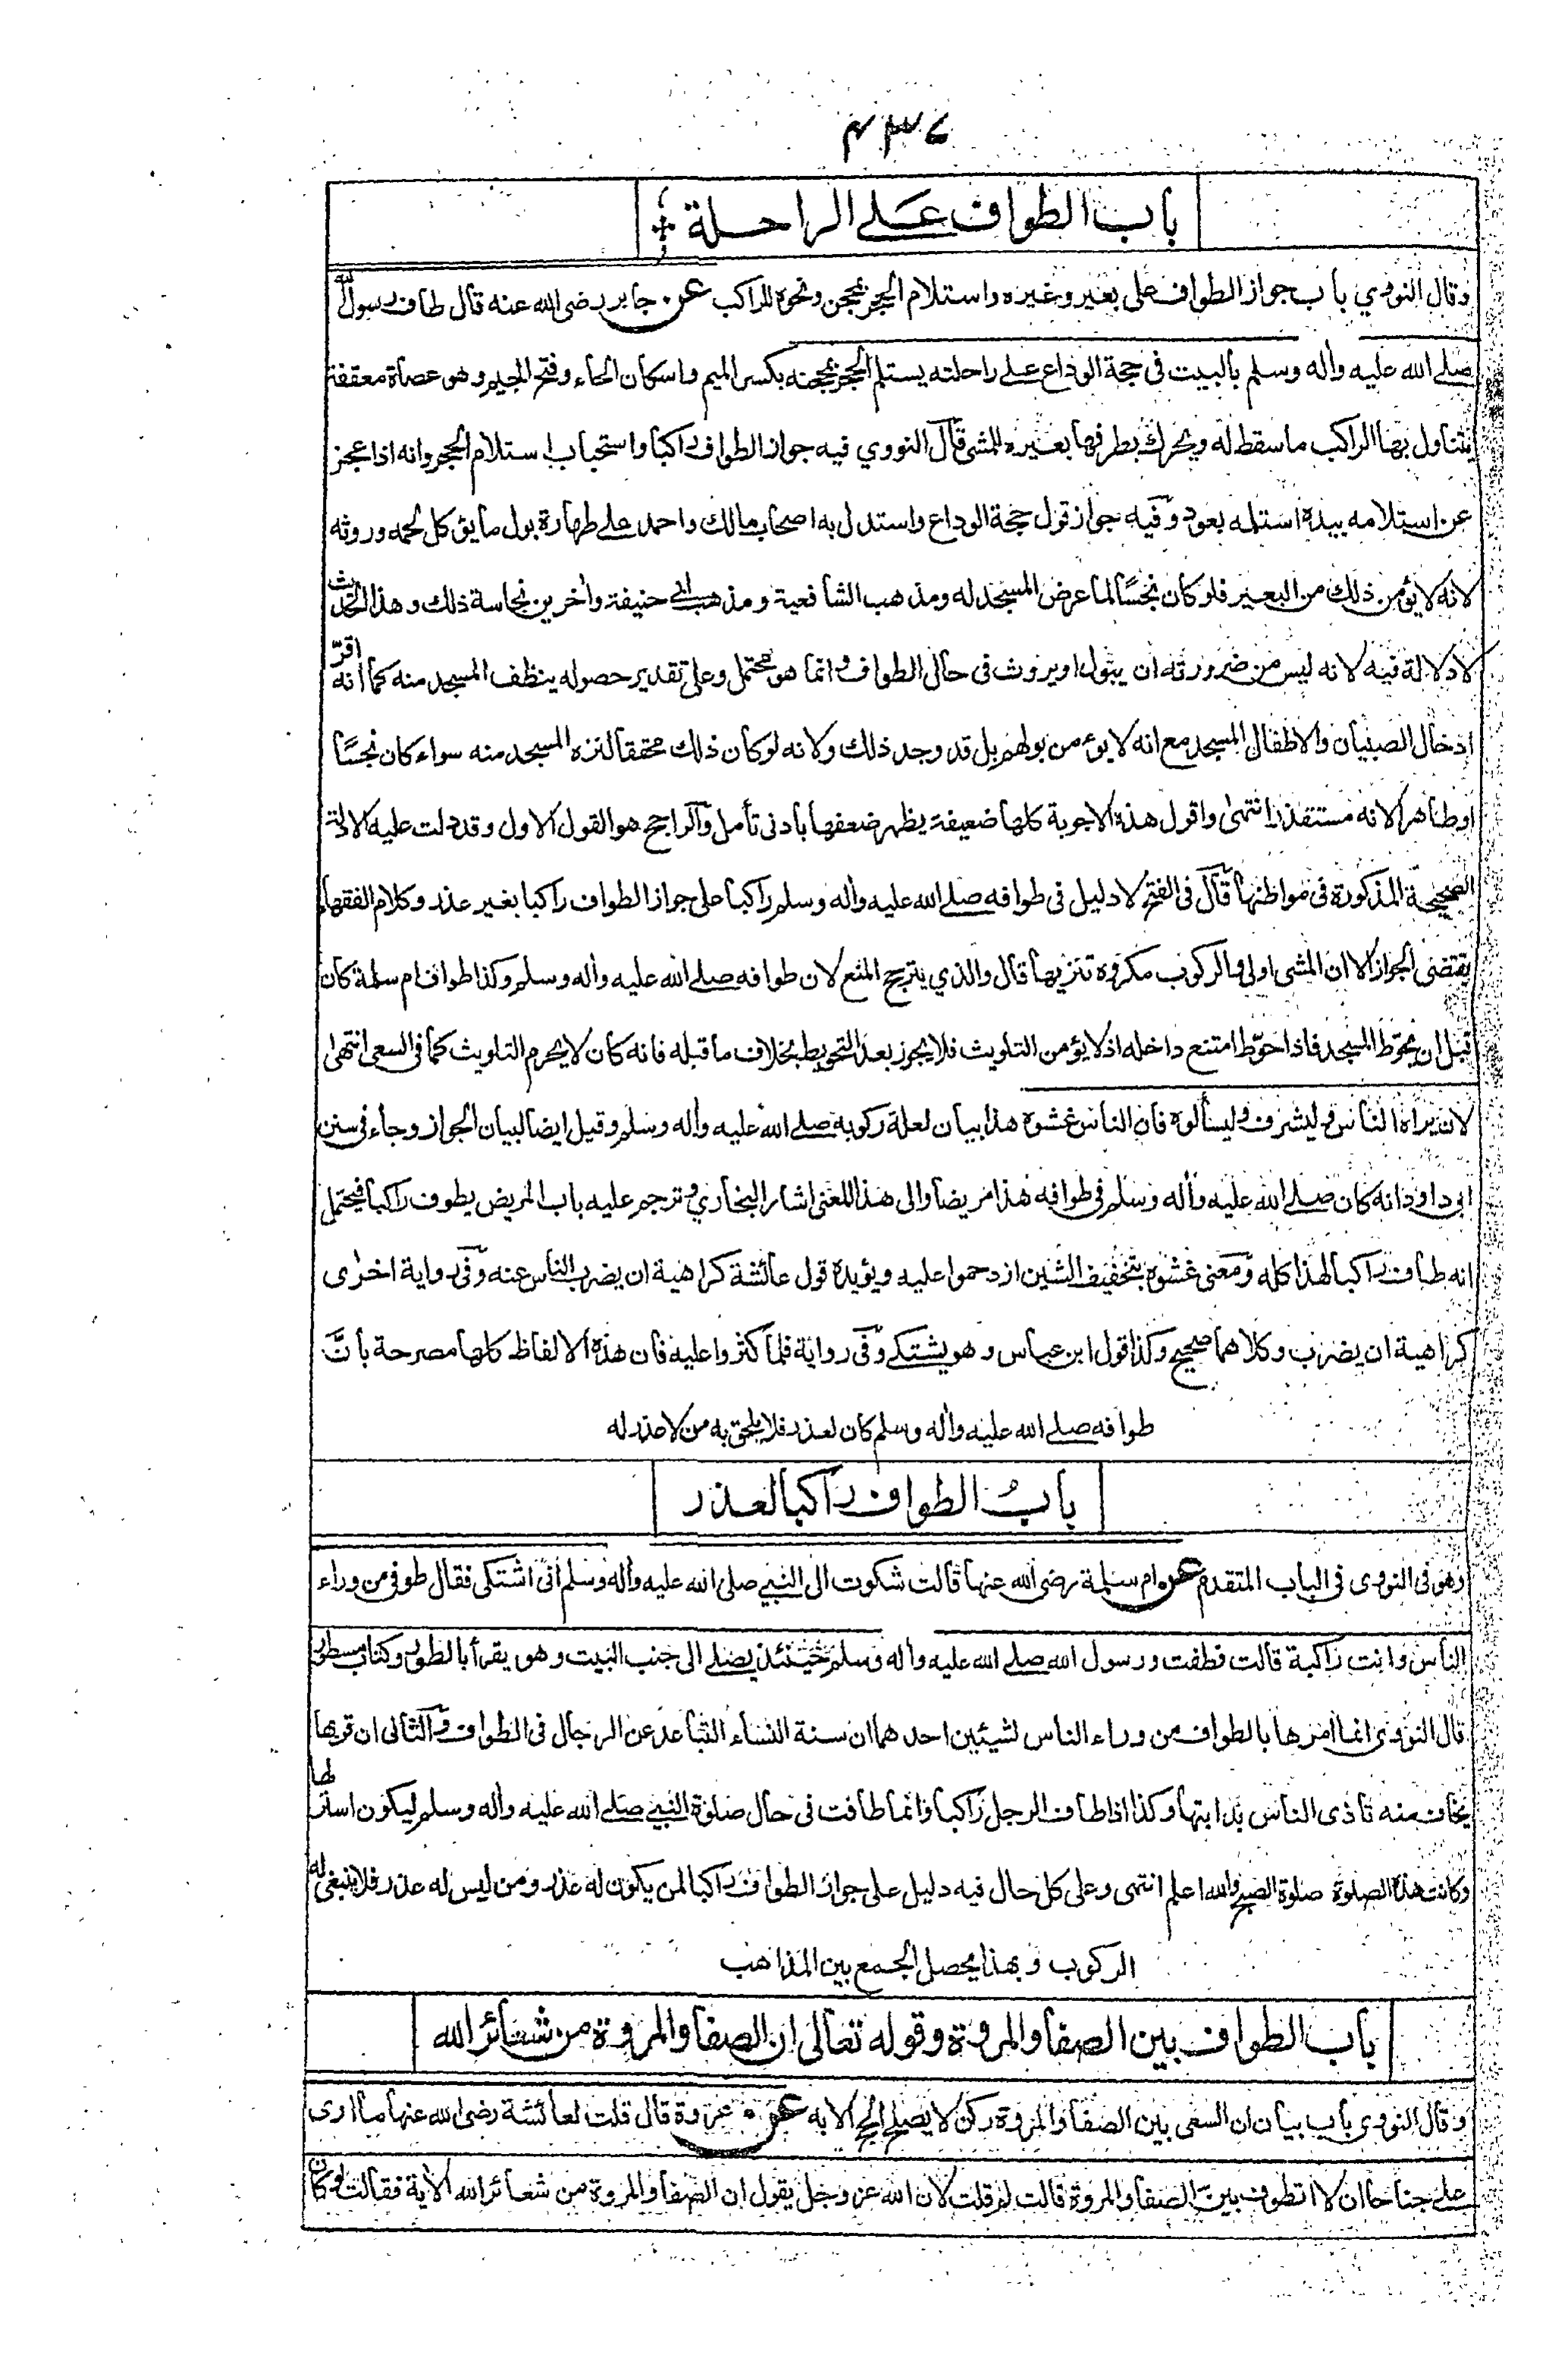 ٤٣٧
باب الطواف على الراحلة
وقال النووي باب جواز الطواف على بعير وغيره واستلام الحجر بمحجن ونحوه للراكب عن جابر رضى الله عنه قال طاف رسول الله
صلى الله عليه وأله وسلم بالبيت فى حجة الوداع على راحلته يستلم الحجر بمحجنه بكسر الميم واسكان الحاء وفتح الجيم وهو عصاة معقفة
يتناول بها الراكب ما سقط له ويحرك بطرفها بعيره للمشى قال النووي فيه جواز الطواف راكبا واستحباب استلام الحجر وانه اذا عجز
عن استلامه بيده استلمه بعود وفيه جواز قول حجة الوداع واستدل به اصحاب مالك واحمد على طهارة بول ما يؤكل لحمه وروثه
لانه لا يؤمن ذلك من البعير فلو كان نجسًا لما عرض المسجد له ومذهب الشافعية ومذهب ابى حنيفة وأخرين نجاسة ذلك وهذا الحديث
لا دلالة فيه لانه ليس من ضرورته ان يبول او يروث فى حال الطواف وانما هو محتمل وعلى تقدير حصوله ينظف المسجد منه كما انه اقرّ
ادخال الصبيان والاطفال المسجد مع انه لا يؤمن من بولهم بل قد وجد ذلك ولانه لو كان ذلك محققا لنزه المسجد منه سواء كان نجسًا
او طاهرا لانه مستقذر انتهى واقول هذه الاجوبة كلها ضعيفة يظهر ضعفها بادنى تأمل والراجح هو القول الاول وقد دلت عليه الادلة
الصحيحة المذكورة فى مواطنها قال فى الفتح لا دليل فى طوافه صلى الله عليه وأله وسلم راكبا على جواز الطواف راكبا بغير عذر وكلام الفقهاء
يقتضى الجواز الا ان المشى اولى والركوب مكروه تنزيها قال والذي يترجح المنع لان طوافه صلى الله عليه وأله وسلم وكذا طواف ام سلمة كان
قبل ان يحوّط المسجد فاذا حوّط امتنع داخله اذ لا يؤمن التلويث فلا يجوز بعد التحويط بخلاف ما قبله فانه كان لا يحرم التلويث كما فى السعى انتهى
لان يراه الناس وليشرف وليسألوه فان الناس غشوه هذا بيان لعلة ركوبه صلى الله عليه وأله وسلم وقيل ايضا لبيان الجواز وجاء فى سنن
ابى داود انه كان صلى الله عليه وأله وسلم فى طوافه هذا مريضا والى هذا المعنى اشار البخاري وترجم عليه باب المريض يطوف راكبا فيحتمل
انه طاف راكبا لهذا كله ومعنى غشوه بتخفيف الشين ازدحموا عليه ويؤيده قول عائشة كراهية ان يضرب الناس عنه وفى رواية اخرى
كراهية ان يضرب وكلاهما صحيح وكذا قول ابن عباس وهو يشتكى وفى رواية فلما كثروا عليه فان هذه الالفاظ كلها مصرحة بانَّ
طوافه صلى الله عليه وأله وسلم كان لعذر فلا يلحق به من لا عذر له
بابُ الطواف راكبا لعذر
وهو فى النووى فى الباب المتقدم عن ام سلمة رضى الله عنها قالت شكوت الى النبى صلى الله عليه وأله وسلم أنى اشتكى فقال طوفى من وراء
الناس وانت راكبة قالت فطفت ورسول الله صلى الله عليه وأله وسلم حينئذ يصلى الى جنب البيت وهو يقرأ بالطور وكتاب مسطور
قال النووى انما امرها بالطواف من وراء الناس لشيئين احدهما ان سنة النساء التباعد عن الرجال فى الطواف والثانى ان قربها
يخاف منه تأذى الناس بدابتها وكذا اذا طاف الرجل راكبا وانما طافت فى حال صلوة النبى صلى الله عليه وأله وسلم ليكون استر لها
وكانت هذه الصلوة صلوة الصبح والله اعلم انتهى وعلى كل حال فيه دليل على جواز الطواف راكبا لمن يكون له عذر ومن ليس له عذر فلا ينبغى له
الركوب وبهذا يحصل الجمع بين المذاهب
باب الطواف بين الصفا والمروة وقوله تعالى ان الصفا والمروة من شعائر الله
وقال النووى باب بيان ان السعى بين الصفا والمروة ركن لا يصلح الحج الا به عن عروة قال قلت لعائشة رضى الله عنها ما ارى
على جناحا ان لا اتطوف بين الصفا والمروة قالت لم قلت لان الله عز وجل يقول ان الصفا والمروة من شعائر الله الأية فقالت لو كان